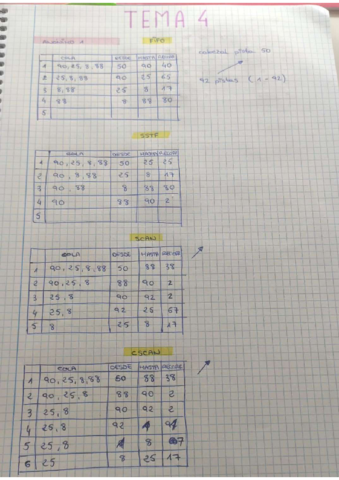 TEMA 4
EJERCICIO 1 FIFO
cabezal pista 50
92 pistas (1 - 92)
COLA DESDE HASTA RECOR
1 90, 25, 8, 88 50 90 40
2 25, 8, 88 90 25 65
3 8, 88 25 8 17
4 88 8 88 80
5
SSTF
COLA DESDE HASTA RECOR
1 90, 25, 8, 88 50 25 25
2 90, 8, 88 25 8 17
3 90, 88 8 88 80
4 90 88 90 2
5
SCAN
COLA DESDE HASTA RECOR
1 90, 25, 8, 88 50 88 38
2 90, 25, 8 88 90 2
3 25, 8 90 92 2
4 25, 8 92 25 67
5 8 25 8 17
CSCAN
COLA DESDE HASTA RECOR
1 90, 25, 8, 88 50 88 38
2 90, 25, 8 88 90 2
3 25, 8 90 92 2
4 25, 8 92 1 91
5 25, 8 1 8 7
6 25 8 25 17